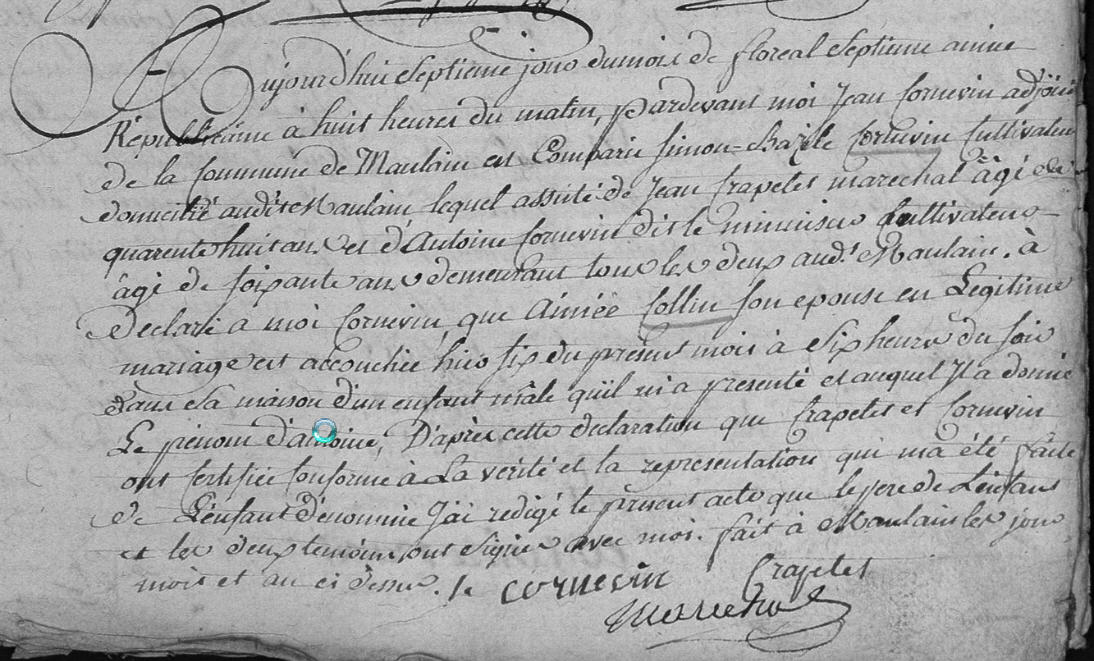 Aujourd'hui Septieme jour du mois de floreal Septieme année
Républicaine à huit heures du matin, pardevant moi Jean Cornevin adjoint
de la Commune de Maulain est Comparu Simon=Bazile Cornevin Cultivateur
domicilié audit Maulain lequel assisté de Jean Crapelet marechal âgé de
quarente huit ans et d'Antoine Cornevin dit le Cultivateur
âgé de soixante ans demeurant tous les deux aud.t Maulain. à
Declaré a moi Cornevin que Aimée Collin son epouse en Legitime
mariage est accouchée hier six du present mois à Six heures du soir
Dans sa maison d'un enfant mâle qu'il m'a presenté et auquel Il a donné
Le prénom d'antoine, D'après cette declaration que Crapelet et Cornevin
ont certifiée Conforme à La verité et la representation qui m'a été faite
de L'enfant dénommé J'ai redigé le present acte que le pere de L'enfant
et les deux temoins ont Signés avec moi. fait à Maulain les jour
mois et an ci dessus. Cornevin Crapelet